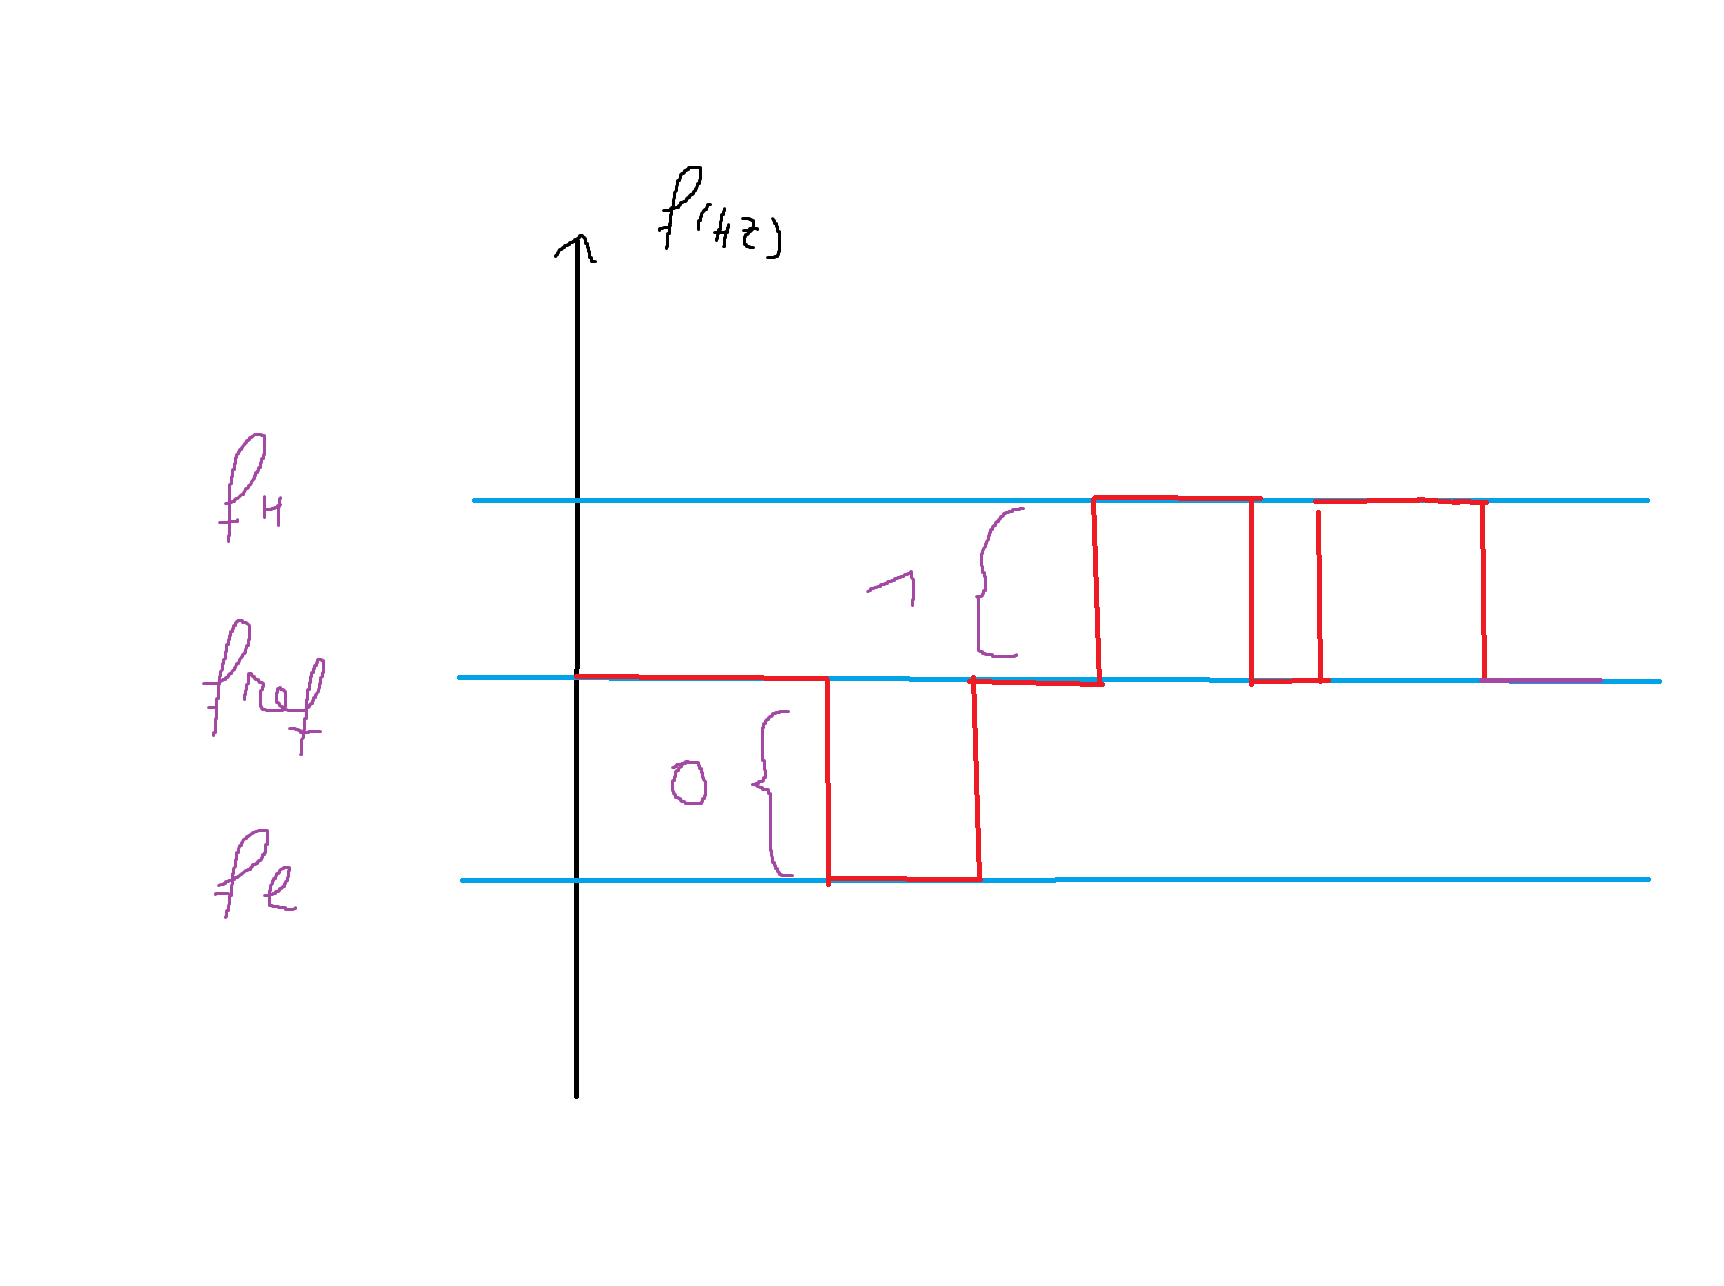 f(Hz)
fH
1
fref
0
fe